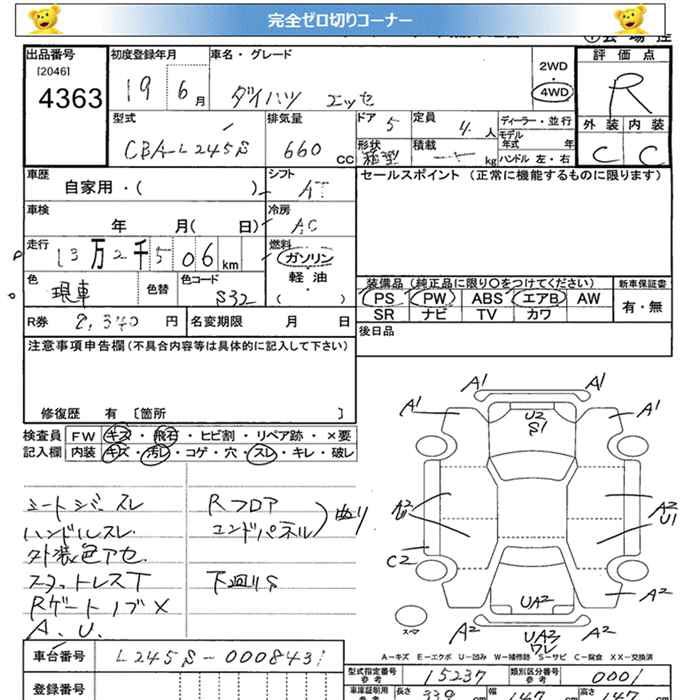 完全ゼロ切りコーナー
出品番号 初度登録年月 車名・グレード 評価点
[2046]
4363 19 6月 ダイハツ エッセ 2WD・4WD R
型式 排気量 ドア 5 定員 4人 ディーラー・並行 外装 内装
CBA-L245S 660cc 形状 箱型 積載 kg モデル年式 年 C C
ハンドル 左・右
車歴 シフト セールスポイント (正常に機能するものに限ります)
自家用・( ) AT
車検 冷房
年 月( 日) AC
走行 燃料
13万2千506km ガソリン
軽油
色 色替 色コード ・
現車 S32 ( )
装備品 (純正品に限り○をつけてください) 新車保証書
PS PW ABS エアB AW 有・無
SR ナビ TV カワ
R券 円 名変期限 月 日 後日品
注意事項申告欄(不具合内容等は具体的に記入して下さい)
修復歴 有 [箇所 ]
検査員 FW キズ・飛石・ヒビ割・リペア跡・×要
記入欄 内装 キズ・汚レ・コゲ・穴・スレ・キレ・破レ
シートジミ スレ
ハンドルスレ
外装色アセ
スタットレスT
Rゲートノブ×
A、U、
Rフロア
エンドパネル
下廻りS
A1 A1
A1 A1
U2
S1
A2
U1
C2
A2 A2
UA2
UA2
ワレ
スペア
A-キズ E-エクボ U-凹み W-補修跡 S-サビ C-腐食 XX-交換済
車台番号 L245S-0008431
登録番号
型式指定番号 参考 15237 類別区分番号 参考 0001
車庫証明用 参考 長さ 339 cm 幅 147 cm 高さ 147 cm